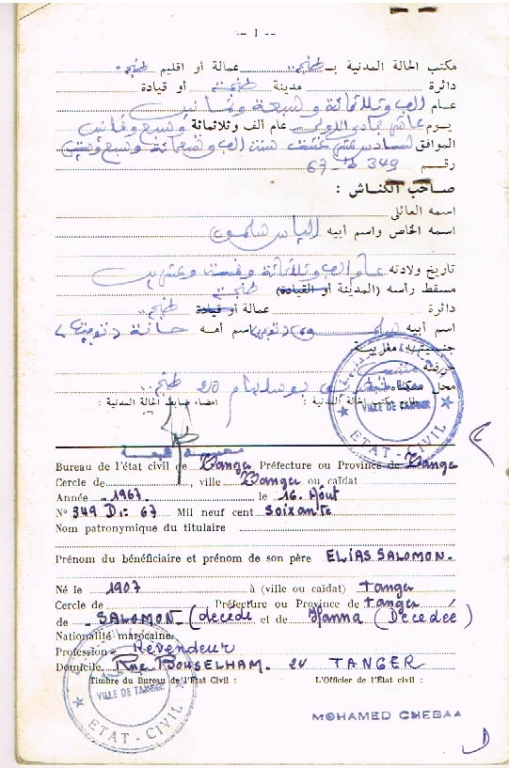 -- 1 --
مكتب الحالة المدنية بـ طنجة عمالة أو اقليم طنجة
دائرة مدينة طنجة أو قيادة
عـام الف وثلاثمائة وسبعة وثمانين
يـوم عاشر جمادى الاولى عام الف وثلاثمائة وسبع وثمانين
الموافق لسادس عشر غشت سنة الف وتسعمائة وسبع وستين
رقـم 349 د 67
صـاحب الكناش :
اسمه العائلي
اسمه الخاص واسم أبيه الياس سلمون
تاريخ ولادته عام الف وثلاثمائة وخمسة وعشرين
مسقط رأسه (المدينة أو القيادة) طنجة
دائرة عمالة أو قيادة طنجة
اسم أبيه واسم أمه حانة
جنسيته مغربية
حرفته
محل سكناه بوسلهام 20 طنجة
طابع مكتب الحالة المدنية : امضاء ضابط الحالة المدنية :
VILLE DE TANGER
ETAT-CIVIL
Bureau de l'état civil de Tanger Préfecture ou Province de Tanger
Cercle de ville Tanger ou caïdat
Année 1967 le 16 Août
N° 349 D: 67 Mil neuf cent soixante
Nom patronymique du titulaire
Prénom du bénéficiaire et prénom de son père ELIAS SALOMON.
Né le 1907 à (ville ou caïdat) tanger
Cercle de Préfecture ou Province de tanger
de SALOMON (décédé et de Hanna (Décedée)
Nationalité marocaine.
Profession Revendeur
Domicile Rue BOUSELHAM. 20 TANGER
Timbre du Bureau de l'État Civil : L'Officier de l'État civil :
VILLE DE TANGER
ETAT-CIVIL
MOHAMED CHEBAA